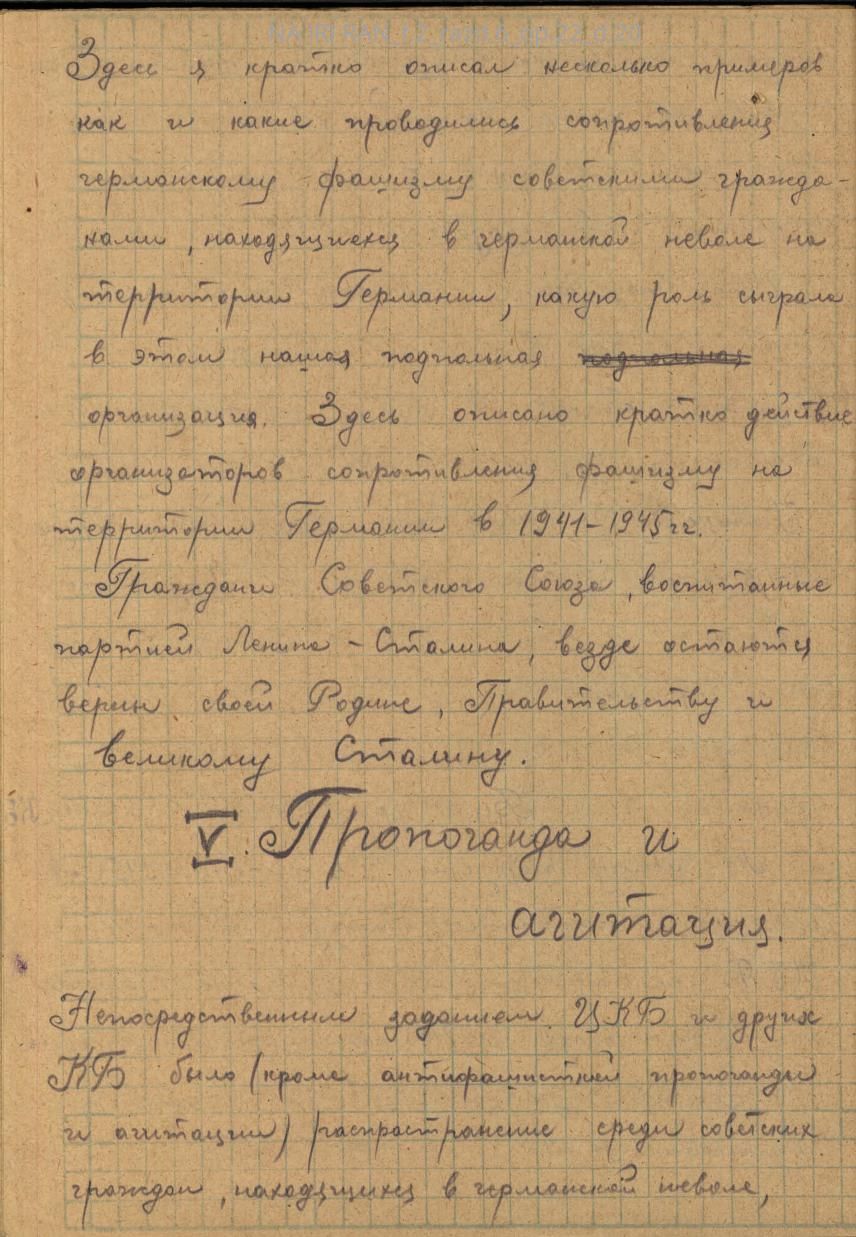 NA IRI RAN_f.2_razd.6_op.22_d.20
Здесь я кратко описал несколько примеров
как и какие проводились сопротивления
германскому фашизму советскими гражда-
нами, находящиехся в германской неволе на
территории Германии, какую роль сыграла
в этом нашая подпольная подпольная
организация. Здесь описано кратко действие
организаторов сопротивления фашизму на
территории Германии в 1941-1945 гг.
Граждани Советского Союза, воспитанные
партией Ленина - Сталина, везде остаются
верны своей Родине, Правительству и
великому Сталину.
V. Пропоганда и
агитация.
Непосредственным заданием ЦКБ и других
КБ было (кроме антифашисткой пропоганды
и агитации) распространение среди советских
граждан, находящихся в германской неволе,